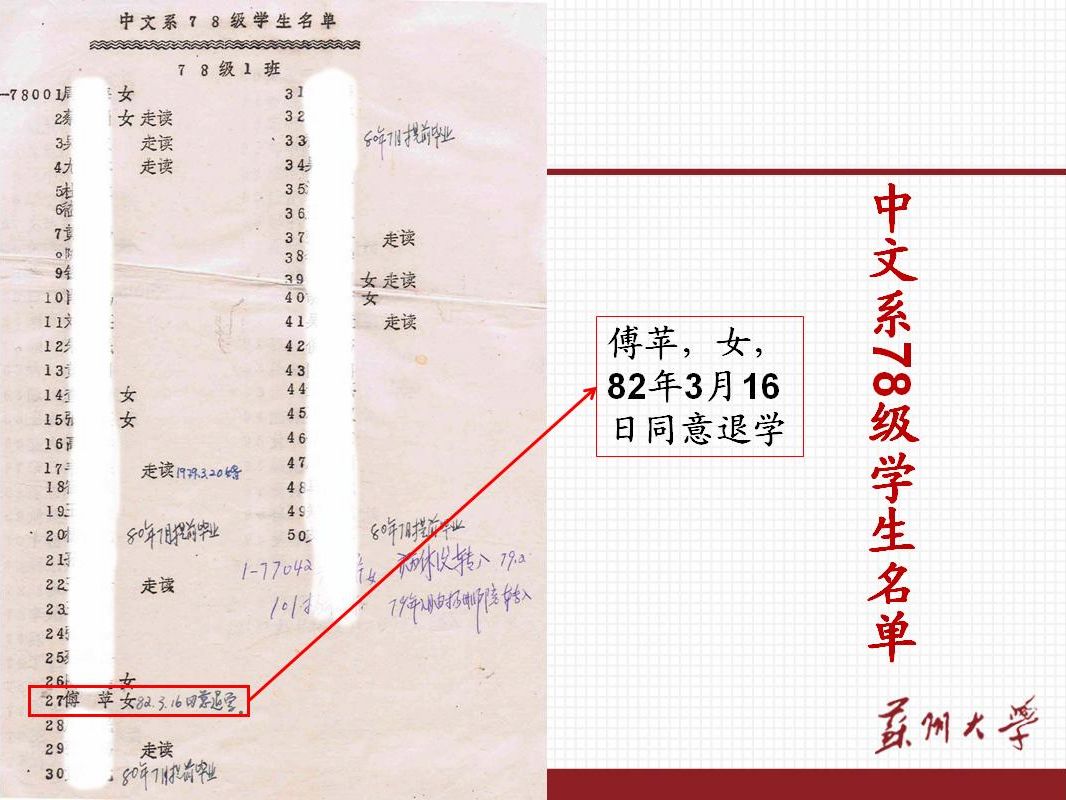 中文系78级学生名单
78级1班
-78001 女
2 女 走读
3 走读
4 走读
5
6
7
9
10
11
12
13
14 女
15 女
16
17 走读
18
19
20 80年7月提前毕业
21
22 走读
23
24
25
26 女
27 傅 苹 女 82.3.16同意退学
28
29 走读
30 80年7月提前毕业
31
32
33 80年7月提前毕业
34
35
36
37 走读
38
39 女 走读
40 女
41 走读
42
43
44
45
46
47
48
49
50 80年7月提前毕业
1-77042 女 转入 79.2
101 79年
傅苹，女，
82年3月16
日同意退学
中文系78级学生名单
苏州大学